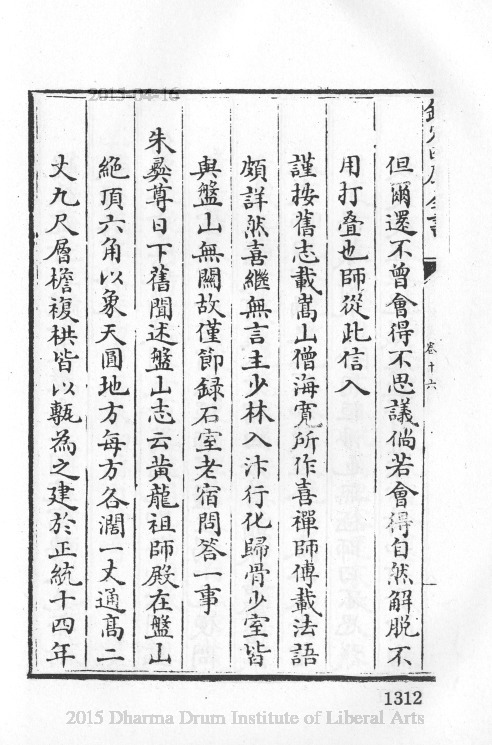 2015-04-16
欽定四庫全書
卷十六
但爾還不曾會得不思議倘若會得自然解脫不
用打疊也師從此信入
謹按舊志載嵩山僧海寬所作喜禪師傳載法語
頗詳然喜繼無言主少林入汴行化歸骨少室皆
與盤山無關故僅節録石室老宿問答一事
朱彞尊日下舊聞述盤山志云黃龍祖師殿在盤山
絶頂六角以象天圓地方每方各濶一丈通高二
丈九尺層檐複栱皆以甎為之建於正統十四年
1312
2015 Dharma Drum Institute of Liberal Arts